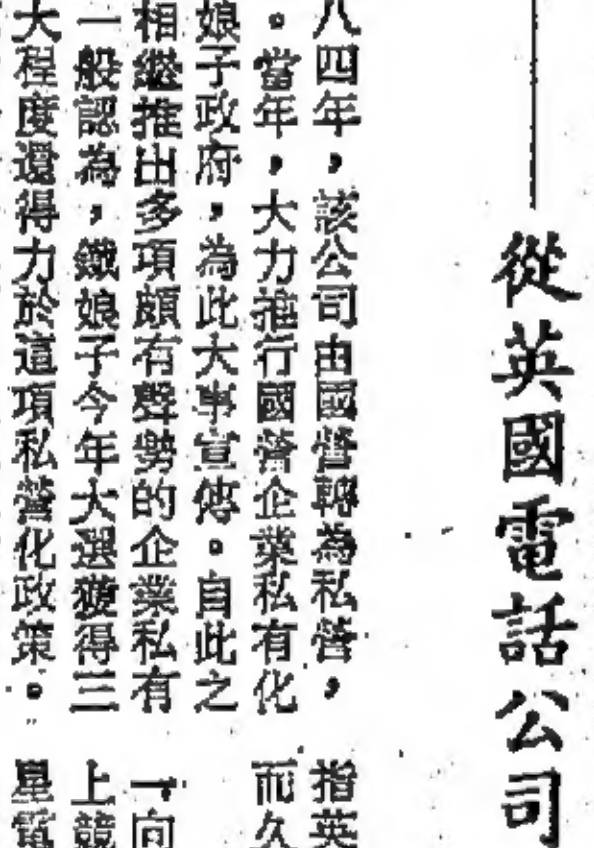 從英國電話公司
八四年，該公司由國營轉為私營，
。當年，大力推行國營企業私有化
娘子政府，為此大事宣傳。自此之
相繼推出多項頗有聲勢的企業私有
一般認為，鐵娘子今年大選獲得三
大程度還得力於這項私營化政策。
指英
而久
一向
上競
星電